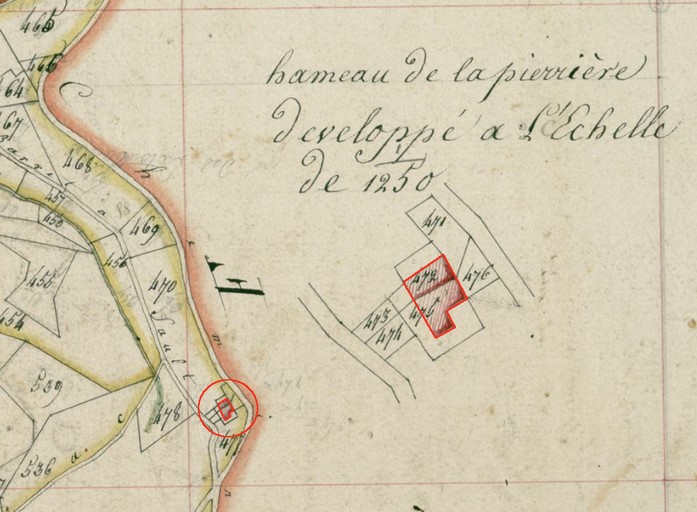 hameau de la pierrière
Developpé a L'Echelle
de 1250
465
466
464
467
468
457
458
469
456
455
470
454
471
472
476
475
473
474
539
478
477
536
Sault